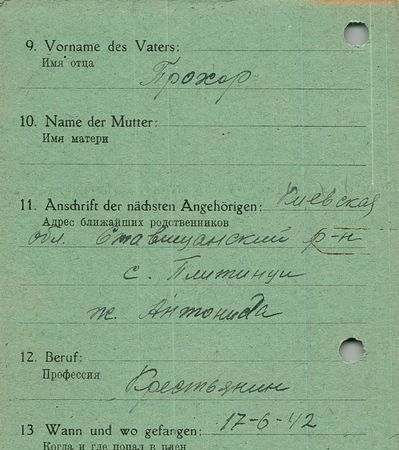 9. Vorname des Vaters:
Имя отца
Прохор
10. Name der Mutter:
Имя матери
11. Anschrift der nächsten Angehörigen: Киевская
Адрес ближайших родственников
обл. Ставищанский р-н
с.
ж. Антонида
12. Beruf:
Профессия
Крестьянин
13 Wann und wo gefangen: 17-6-42
Когда и где попал в плен